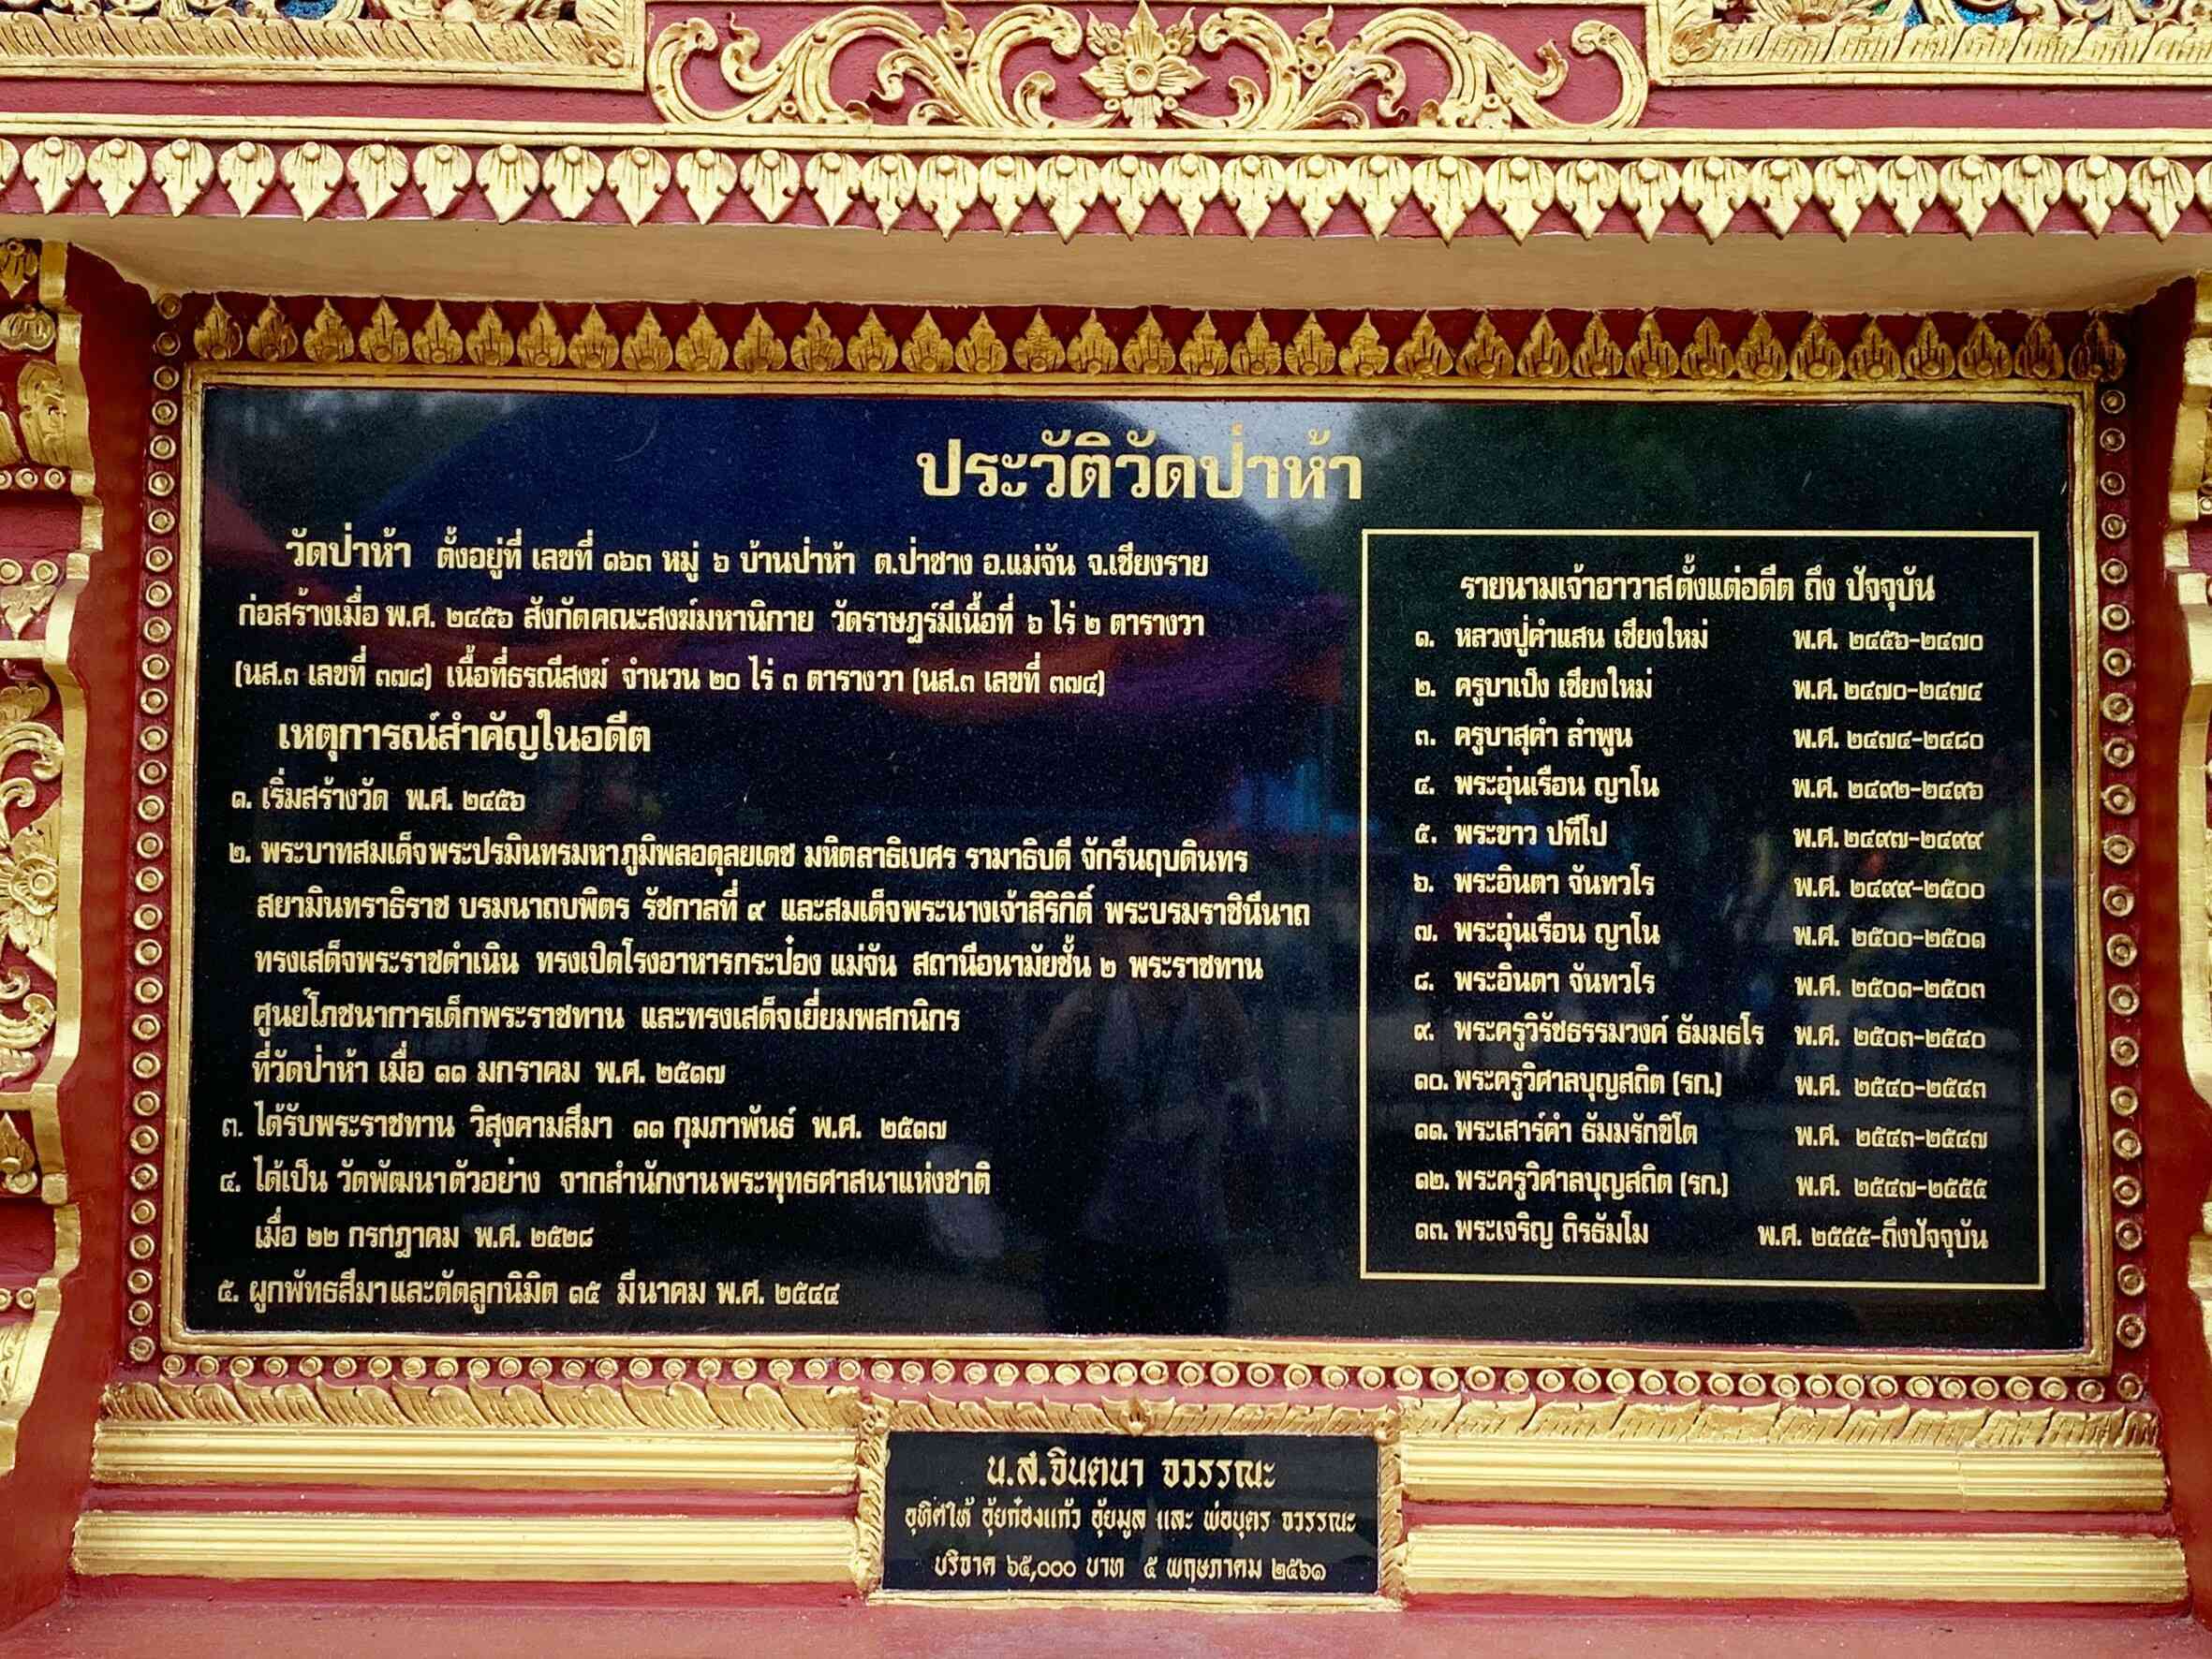 ประวัติวัดป่าห้า
วัดป่าห้า ตั้งอยู่ที่ เลขที่ ๑๖๓ หมู่ ๖ บ้านป่าห้า ต.ป่าซาง อ.แม่จัน จ.เชียงราย
ก่อสร้างเมื่อ พ.ศ. ๒๔๕๖ สังกัดคณะสงฆ์มหานิกาย วัดราษฎร์มีเนื้อที่ ๖ ไร่ ๒ ตารางวา
(นส.๓ เลขที่ ๓๗๘) เนื้อที่ธรณีสงฆ์ จำนวน ๒๐ ไร่ ๓ ตารางวา (นส.๓ เลขที่ ๓๗๔)
เหตุการณ์สำคัญในอดีต
๑. เริ่มสร้างวัด พ.ศ. ๒๔๕๖
๒. พระบาทสมเด็จพระปรมินทรมหาภูมิพลอดุลยเดช มหิตลาธิเบศร รามาธิบดี จักรีนฤบดินทร
สยามินทราธิราช บรมนาถบพิตร รัชกาลที่ ๙ และสมเด็จพระนางเจ้าสิริกิติ์ พระบรมราชินีนาถ
ทรงเสด็จพระราชดำเนิน ทรงเปิดโรงอาหารกระป๋อง แม่จัน สถานีอนามัยชั้น ๒ พระราชทาน
ศูนย์โภชนาการเด็กพระราชทาน และทรงเสด็จเยี่ยมพสกนิกร
ที่วัดป่าห้า เมื่อ ๑๑ มกราคม พ.ศ. ๒๕๑๗
๓. ได้รับพระราชทาน วิสุงคามสีมา ๑๑ กุมภาพันธ์ พ.ศ. ๒๕๑๗
๔. ได้เป็น วัดพัฒนาตัวอย่าง จากสำนักงานพระพุทธศาสนาแห่งชาติ
เมื่อ ๒๒ กรกฎาคม พ.ศ. ๒๕๒๘
๕. ผูกพัทธสีมาและตัดลูกนิมิต ๑๕ มีนาคม พ.ศ. ๒๕๔๔
รายนามเจ้าอาวาสตั้งแต่อดีต ถึง ปัจจุบัน
๑. หลวงปู่คำแสน เชียงใหม่ พ.ศ. ๒๔๕๖-๒๔๗๐
๒. ครูบาเป็ง เชียงใหม่ พ.ศ. ๒๔๗๐-๒๔๗๔
๓. ครูบาสุคำ ลำพูน พ.ศ. ๒๔๗๔-๒๔๘๐
๔. พระอุ่นเรือน ญาโน พ.ศ. ๒๔๙๒-๒๔๙๖
๕. พระขาว ปทีโป พ.ศ. ๒๔๙๗-๒๔๙๙
๖. พระอินตา จันทวโร พ.ศ. ๒๔๙๙-๒๕๐๐
๗. พระอุ่นเรือน ญาโน พ.ศ. ๒๕๐๐-๒๕๐๑
๘. พระอินตา จันทวโร พ.ศ. ๒๕๐๑-๒๕๐๓
๙. พระครูวิรัชธรรมวงค์ ธัมมธโร พ.ศ. ๒๕๐๓-๒๕๔๐
๑๐. พระครูวิศาลบุญสถิต (รก.) พ.ศ. ๒๕๔๐-๒๕๔๓
๑๑. พระเสาร์คำ ธัมมรักขิโต พ.ศ. ๒๕๔๓-๒๕๔๗
๑๒. พระครูวิศาลบุญสถิต (รก.) พ.ศ. ๒๕๔๗-๒๕๕๕
๑๓. พระเจริญ ถิรธัมโม พ.ศ. ๒๕๕๕-ถึงปัจจุบัน
น.ส.จินตนา จวรรณะ
อุทิศให้ อุ้ยก๋องแก้ว อุ้ยมูล และ พ่อบุตร จวรรณะ
บริจาค ๖๕,๐๐๐ บาท ๕ พฤษภาคม ๒๕๖๑